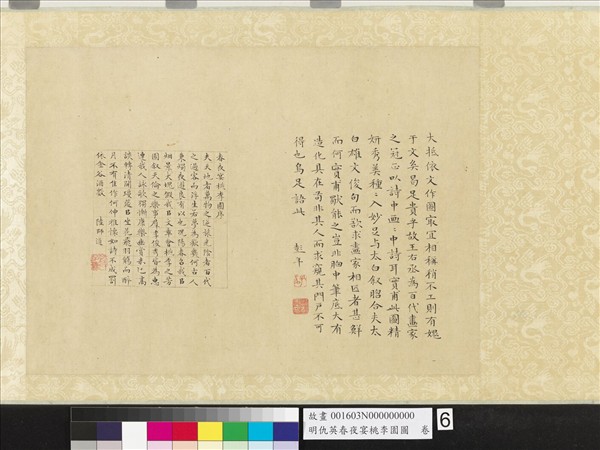 大抵依文作圖最宜相稱稍不工則有媿
于文矣曷足貴乎故王右丞爲百代畫家
之冠正以詩中画〻中詩耳實甫此圖精
妍秀美種〻入妙足与太白叙脗合夫太
白雄文俊句而欲求畫家相匹者甚鮮
而何實甫獨能之豈非胸中筆底大有
造化具在苟非其人而求窺其門戶不可
得也烏足語此
彭年
春夜宴桃李園序
夫天地者萬物之逆旅光陰者百代
之過客而浮生若夢為歡幾何古人
秉燭夜遊良有以也況陽春召我以
烟景大塊假我以文章會桃李之芳
園叙天倫之樂事群季俊秀皆為惠
連我人詠歌獨慚康樂幽賞未已高
談轉清開瓊筵以坐花飛羽觴而醉
月不有佳作何伸雅懷如詩不成罰
依金谷酒數
陸師道
故畫 001603N000000000
明仇英春夜宴桃李園圖 卷
6